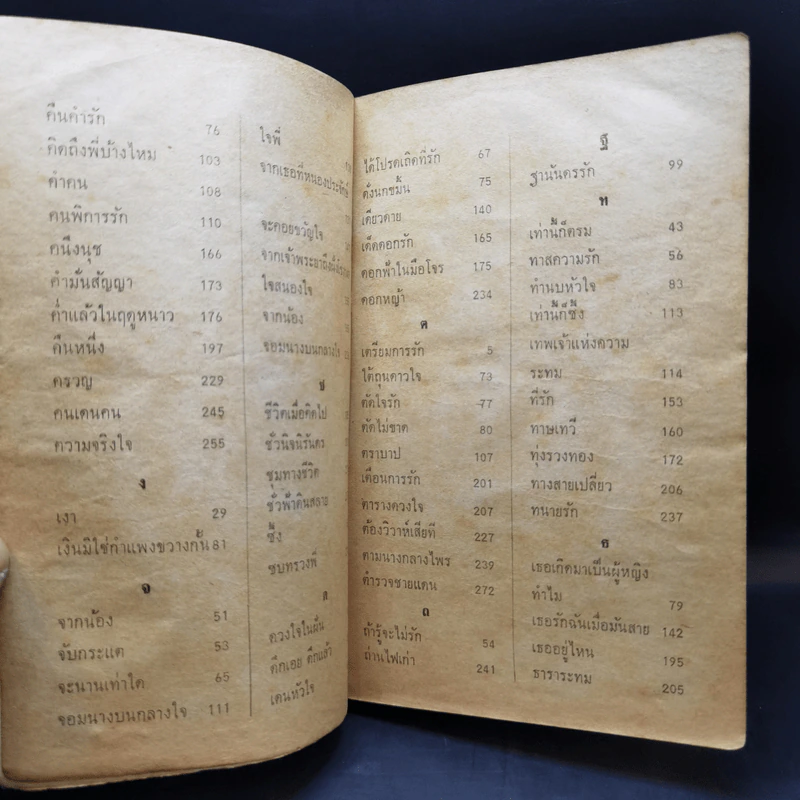 คืนคำรัก 76
คิดถึงพี่บ้างไหม 103
คำคน 108
คนพิการรัก 110
คนึงนุช 166
คำมั่นสัญญา 173
ค่ำแล้วในฤดูหนาว 176
คืนหนึ่ง 197
ครวญ 229
คนเดนคน 245
ความจริงใจ 255
ง
เงา 29
เงินมิใช่กำแพงขวางกั้น 81
จ
จากน้อง 51
จับกระแต 53
จะนานเท่าใด 65
จอมนางบนกลางใจ 111
ใจพี่
จากเธอที่หนองประจักษ์
จะคอยขวัญใจ
ใจสนองใจ
จากน้อง
จอมนางบนกลางใจ
ช
ชีวิตเมื่อคิดไป
ชั่วนิจนิรันดร
ชุมทางชีวิต
ชั่วฟ้าดินสลาย
ซึ้ง
ซบทรวงพี่
ด
ดวงใจในฝัน
ดึกเอย ดึกแล้ว
เดนหัวใจ
ได้โปรดเถิดที่รัก 67
ดั่งนกขมิ้น 75
เดียวดาย 140
เด็ดดอกรัก 165
ดอกฟ้าในมือโจร 175
ดอกหญ้า 234
ต
เตรียมการรัก 5
ใต้ถุนดาวใจ 73
ตัดใจรัก 77
ตัดไม่ขาด 80
ตราบาป 107
เตือนการรัก 201
ดารางดวงใจ 207
ต้องวิวาห์เสียที 227
ตามนางกลางไพร 239
ตำรวจชายแดน 272
ถ
ถ้ารู้จะไม่รัก 54
ถ่านไฟเก่า 241
ฐ
ฐานันดรรัก 99
ท
เท่านี้ก็ตรม 43
ทาสความรัก 56
ทำนบหัวใจ 83
เท่านี้ก็ซึ้ง 113
เทพเจ้าแห่งความ
ระทม 114
ที่รัก 153
ทาษเทวี 160
ทุ่งรวงทอง 172
ทางสายเปลี่ยว 206
ทนายรัก 237
ธ
เธอเกิดมาเป็นผู้หญิง
ทำไม 79
เธอรักฉันเมื่อมันสาย 142
เธออยู่ไหน 195
ธาราระทม 205